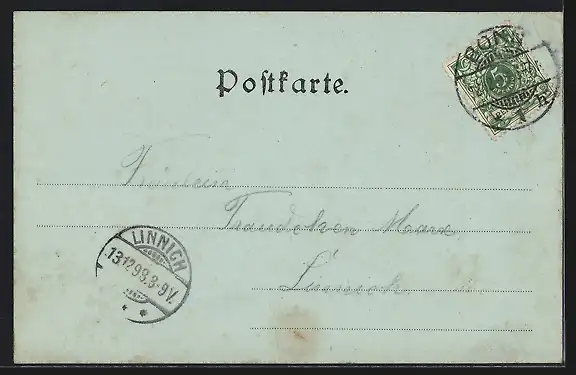 Postkarte.
BONN
5
Fräulein
Traudchen Maax
Linnich
LINNICH
13.12.98.8-9V.